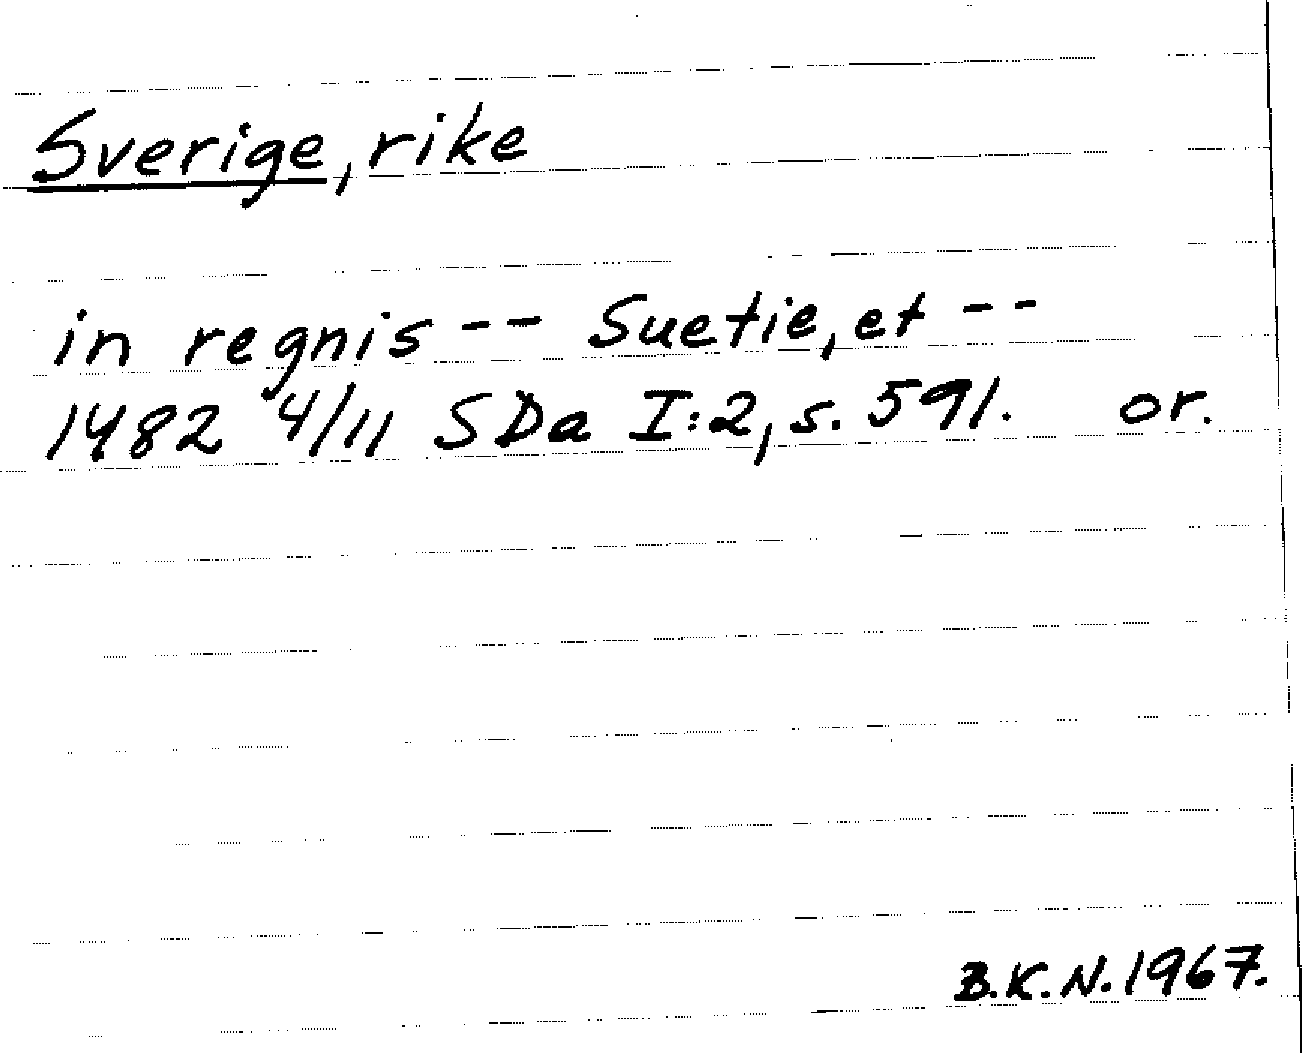 Sverige, rike
in regnis -- Suetie, et --
1482 4/11 SDa I:2, s. 591. or.
B.K.N. 1967.